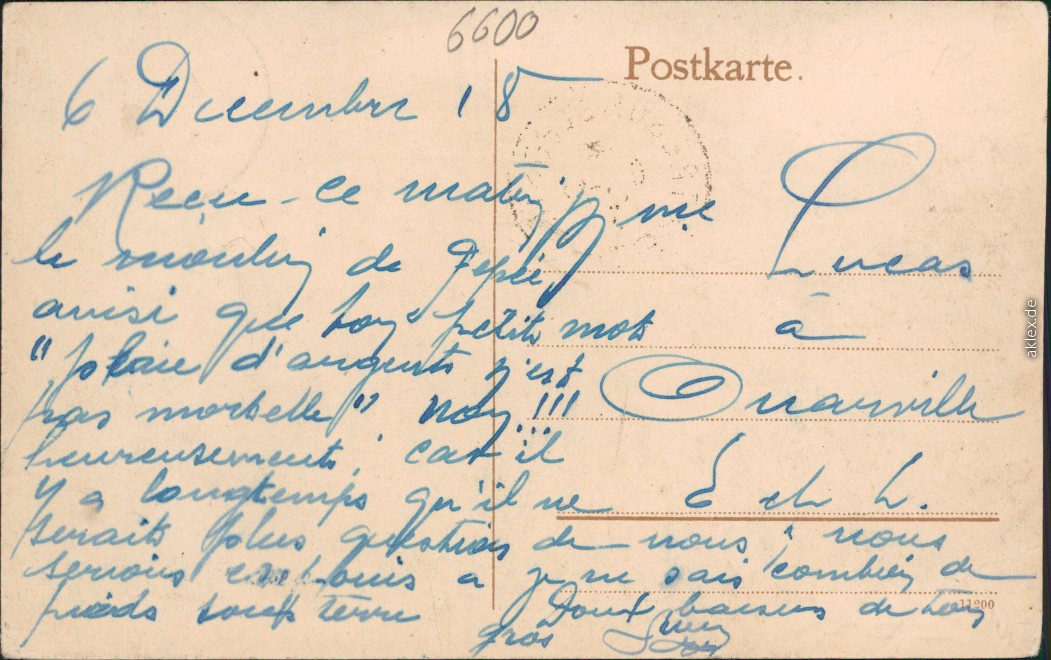 6600
Postkarte.
6 Décembre 18
Reçu ce matin
le moulin de
ainsi que ton petit mot
"plaie d'argents n'est
pas mortelle" non!!!
heureusements, car il
y a longtemps qu'il ne
serait plus question de nous, nous
serions enfouis a je ne sais combien de
pieds sous terre Doux baisers de ton
gros
Mme
Lucas
à
Ouarville
E et L.
11200
aklex.de